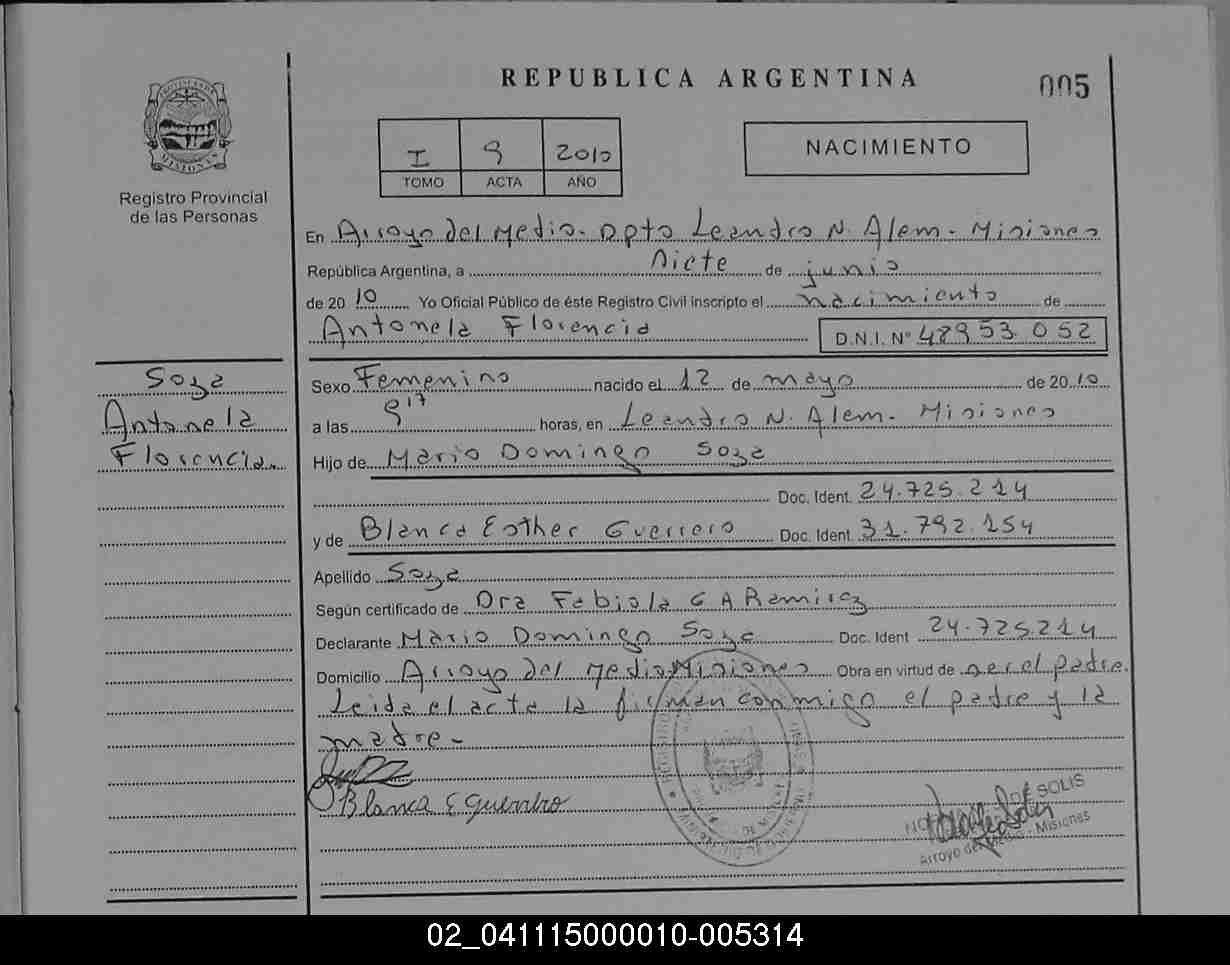 REPUBLICA ARGENTINA
005
PROVINCIA DE MISIONES
Registro Provincial
de las Personas
I 9 2010
TOMO ACTA AÑO
NACIMIENTO
En Arroyo del Medio. Dpto Leandro N. Alem - Misiones
República Argentina, a siete de junio
de 2010 Yo Oficial Público de éste Registro Civil inscripto el nacimiento de
Antonela Florencia D.N.I. Nº 48953.052
Soza
Antonela
Florencia.
Sexo Femenino nacido el 12 de mayo de 2010
a las 9 17 horas, en Leandro N. Alem - Misiones
Hijo de Mario Domingo Soza
Doc. Ident. 24.725.214
y de Blanca Esther Guerrero Doc. Ident. 31.792.154
Apellido Soza
Según certificado de Dra Fabiola G A Ramirez
Declarante Mario Domingo Soza Doc. Ident 24.725214
Domicilio Arroyo del Medio Misiones Obra en virtud de ser el padre.
Leida el acta la firman conmigo el padre y la
madre -
Blanca E Guerrero
SOLIS
Arroyo del Medio - Misiones
02_041115000010-005314